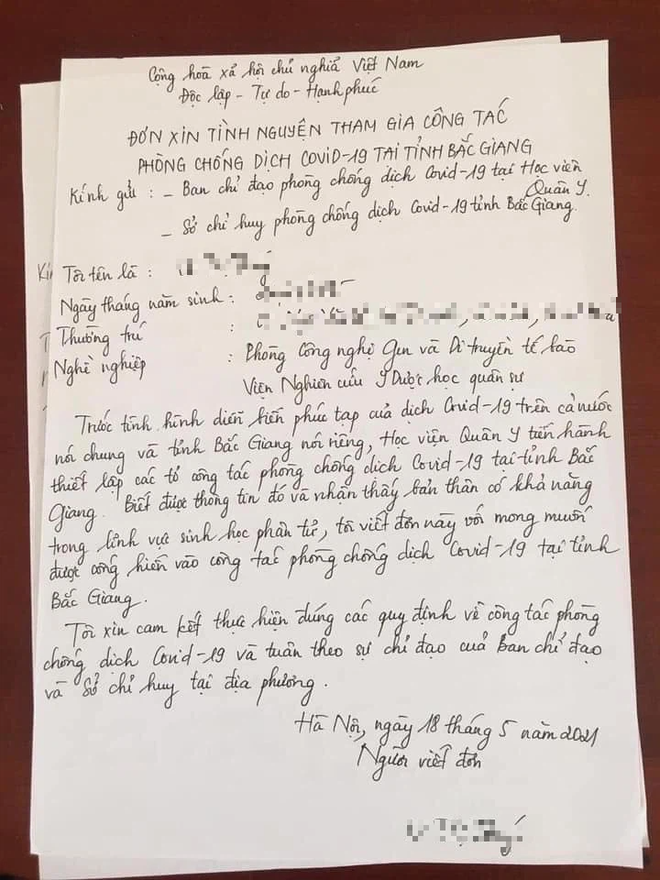 Cộng hoà xã hội chủ nghĩa Việt Nam
Độc lập - Tự do - Hạnh phúc
ĐƠN XIN TÌNH NGUYỆN THAM GIA CÔNG TÁC
PHÒNG CHỐNG DỊCH COVID-19 TẠI TỈNH BẮC GIANG
Kính gửi : - Ban chỉ đạo phòng chống dịch Covid-19 tại Học viện
Quân Y.
- Sở chỉ huy phòng chống dịch Covid-19 tỉnh Bắc Giang.
Tôi tên là :
Ngày tháng năm sinh :
Thường trú :
Nghề nghiệp : Phòng Công nghệ Gen và Di truyền tế bào
Viện Nghiên cứu Y Dược học quân sự
Trước tình hình diễn biến phức tạp của dịch Covid-19 trên cả nước
nói chung và tỉnh Bắc Giang nói riêng, Học viện Quân Y tiến hành
thiết lập các tổ công tác phòng chống dịch Covid-19 tại tỉnh Bắc
Giang. Biết được thông tin đó và nhận thấy bản thân có khả năng
trong lĩnh vực sinh học phân tử, tôi viết đơn này với mong muốn
được cống hiến vào công tác phòng chống dịch Covid-19 tại tỉnh
Bắc Giang.
Tôi xin cam kết thực hiện đúng các quy định về công tác phòng
chống dịch Covid-19 và tuân theo sự chỉ đạo của Ban chỉ đạo
và Sở chỉ huy tại địa phương.
Hà Nội, ngày 18 tháng 5 năm 2021
Người viết đơn